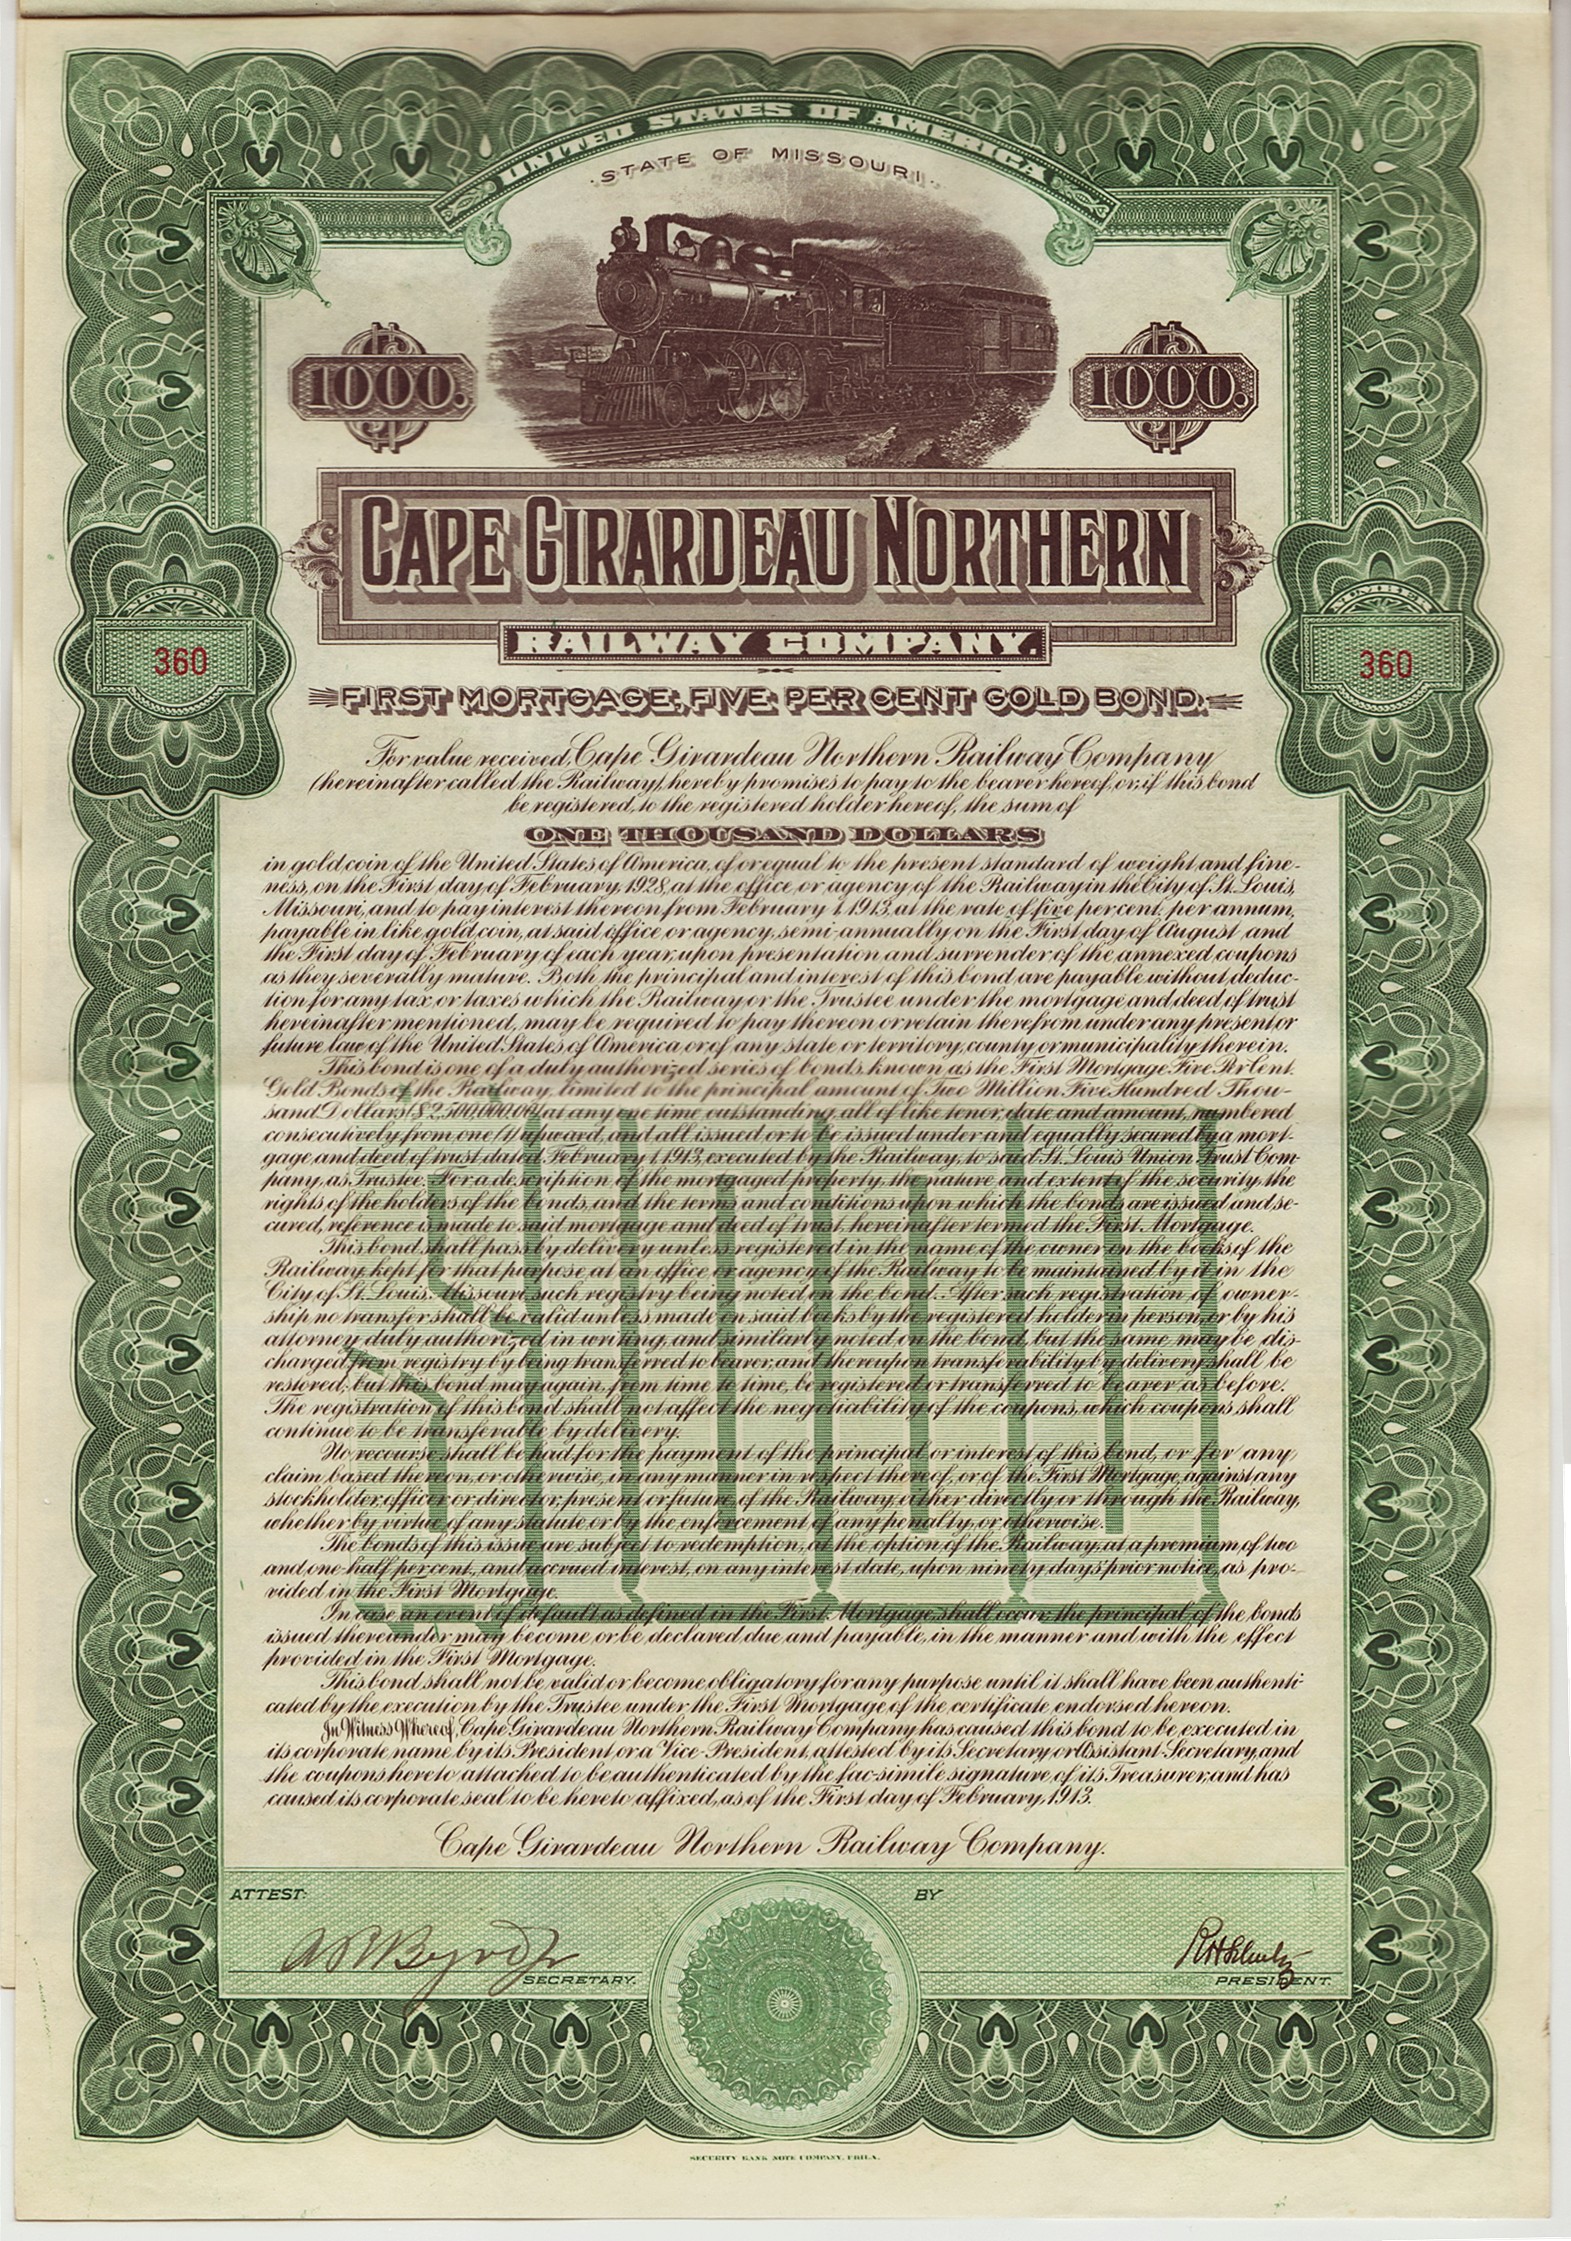 UNITED STATES OF AMERICA
STATE OF MISSOURI
$1000. $1000.
CAPE GIRARDEAU NORTHERN
RAILWAY COMPANY.
NUMBER NUMBER
360 360
FIRST MORTGAGE, FIVE PER CENT GOLD BOND.
For value received, Cape Girardeau Northern Railway Company
(hereinafter called the Railway), hereby promises to pay to the bearer hereof, or, if this bond
be registered, to the registered holder hereof, the sum of
ONE THOUSAND DOLLARS
in gold coin of the United States of America, of or equal to the present standard of weight and fine-
ness, on the First day of February, 1928, at the office or agency of the Railway in the City of St. Louis,
Missouri, and to pay interest thereon from February 1, 1913, at the rate of five per cent. per annum,
payable in like gold coin, at said office or agency, semi-annually on the First day of August and
the First day of February of each year, upon presentation and surrender of the annexed coupons
as they severally mature. Both the principal and interest of this bond are payable without deduc-
tion for any tax or taxes which the Railway or the Trustee under the mortgage and deed of trust
hereinafter mentioned, may be required to pay thereon or retain therefrom under any present or
future law of the United States of America or of any state or territory, county or municipality therein.
This bond is one of a duty authorized series of bonds, known as the First Mortgage Five Per Cent.
Gold Bonds of the Railway, limited to the principal amount of Two Million Five Hundred Thou-
sand Dollars ($2,500,000.00) at any one time outstanding, all of like tenor, date and amount, numbered
consecutively from one (1) upward, and all issued or to be issued under and equally secured by a mort-
gage and deed of trust dated February 1, 1913, executed by the Railway, to said St. Louis Union Trust Com-
pany, as Trustee. For a description of the mortgaged property, the nature and extent of the security, the
rights of the holders of the bonds, and the terms and conditions upon which the bonds are issued and se-
cured, reference is made to said mortgage and deed of trust, hereinafter termed the First Mortgage.
This bond shall pass by delivery unless registered in the name of the owner on the books of the
Railway kept for that purpose, at an office or agency of the Railway to be maintained by it in the
City of St. Louis, Missouri, such registry being noted on the bond. After such registration of owner-
ship no transfer shall be valid unless made on said books by the registered holder in person, or by his
attorney duly authorized in writing, and similarly noted on the bond, but the same may be dis-
charged from registry by being transferred to bearer, and thereupon transferability by delivery shall be
restored; but this bond may again, from time to time, be registered or transferred to bearer as before.
The registration of this bond shall not affect the negotiability of the coupons, which coupons shall
continue to be transferable by delivery.
No recourse shall be had for the payment of the principal or interest of this bond, or for any
claim based thereon, or otherwise, in any manner in respect thereof, or of the First Mortgage, against any
stockholder, officer or director, present or future, of the Railway, either directly or through the Railway,
whether by virtue of any statute or by the enforcement of any penalty, or otherwise.
The bonds of this issue are subject to redemption, at the option of the Railway, at a premium of two
and one-half per cent., and accrued interest, on any interest date, upon ninety days' prior notice, as pro-
vided in the First Mortgage.
In case an event of default as defined in the First Mortgage shall occur, the principal of the bonds
issued thereunder may become or be declared due and payable, in the manner and with the effect
provided in the First Mortgage.
This bond shall not be valid or become obligatory for any purpose until it shall have been authenti-
cated by the execution by the Trustee under the First Mortgage of the certificate endorsed hereon.
In Witness Whereof, Cape Girardeau Northern Railway Company has caused this bond to be executed in
its corporate name by its President or a Vice-President, attested by its Secretary or Assistant Secretary, and
the coupons hereto attached to be authenticated by the fac-simile signature of its Treasurer, and has
caused its corporate seal to be hereto affixed, as of the First day of February, 1913.
Cape Girardeau Northern Railway Company.
ATTEST: BY
SECRETARY. PRESIDENT.
SECURITY BANK NOTE COMPANY, PHILA.